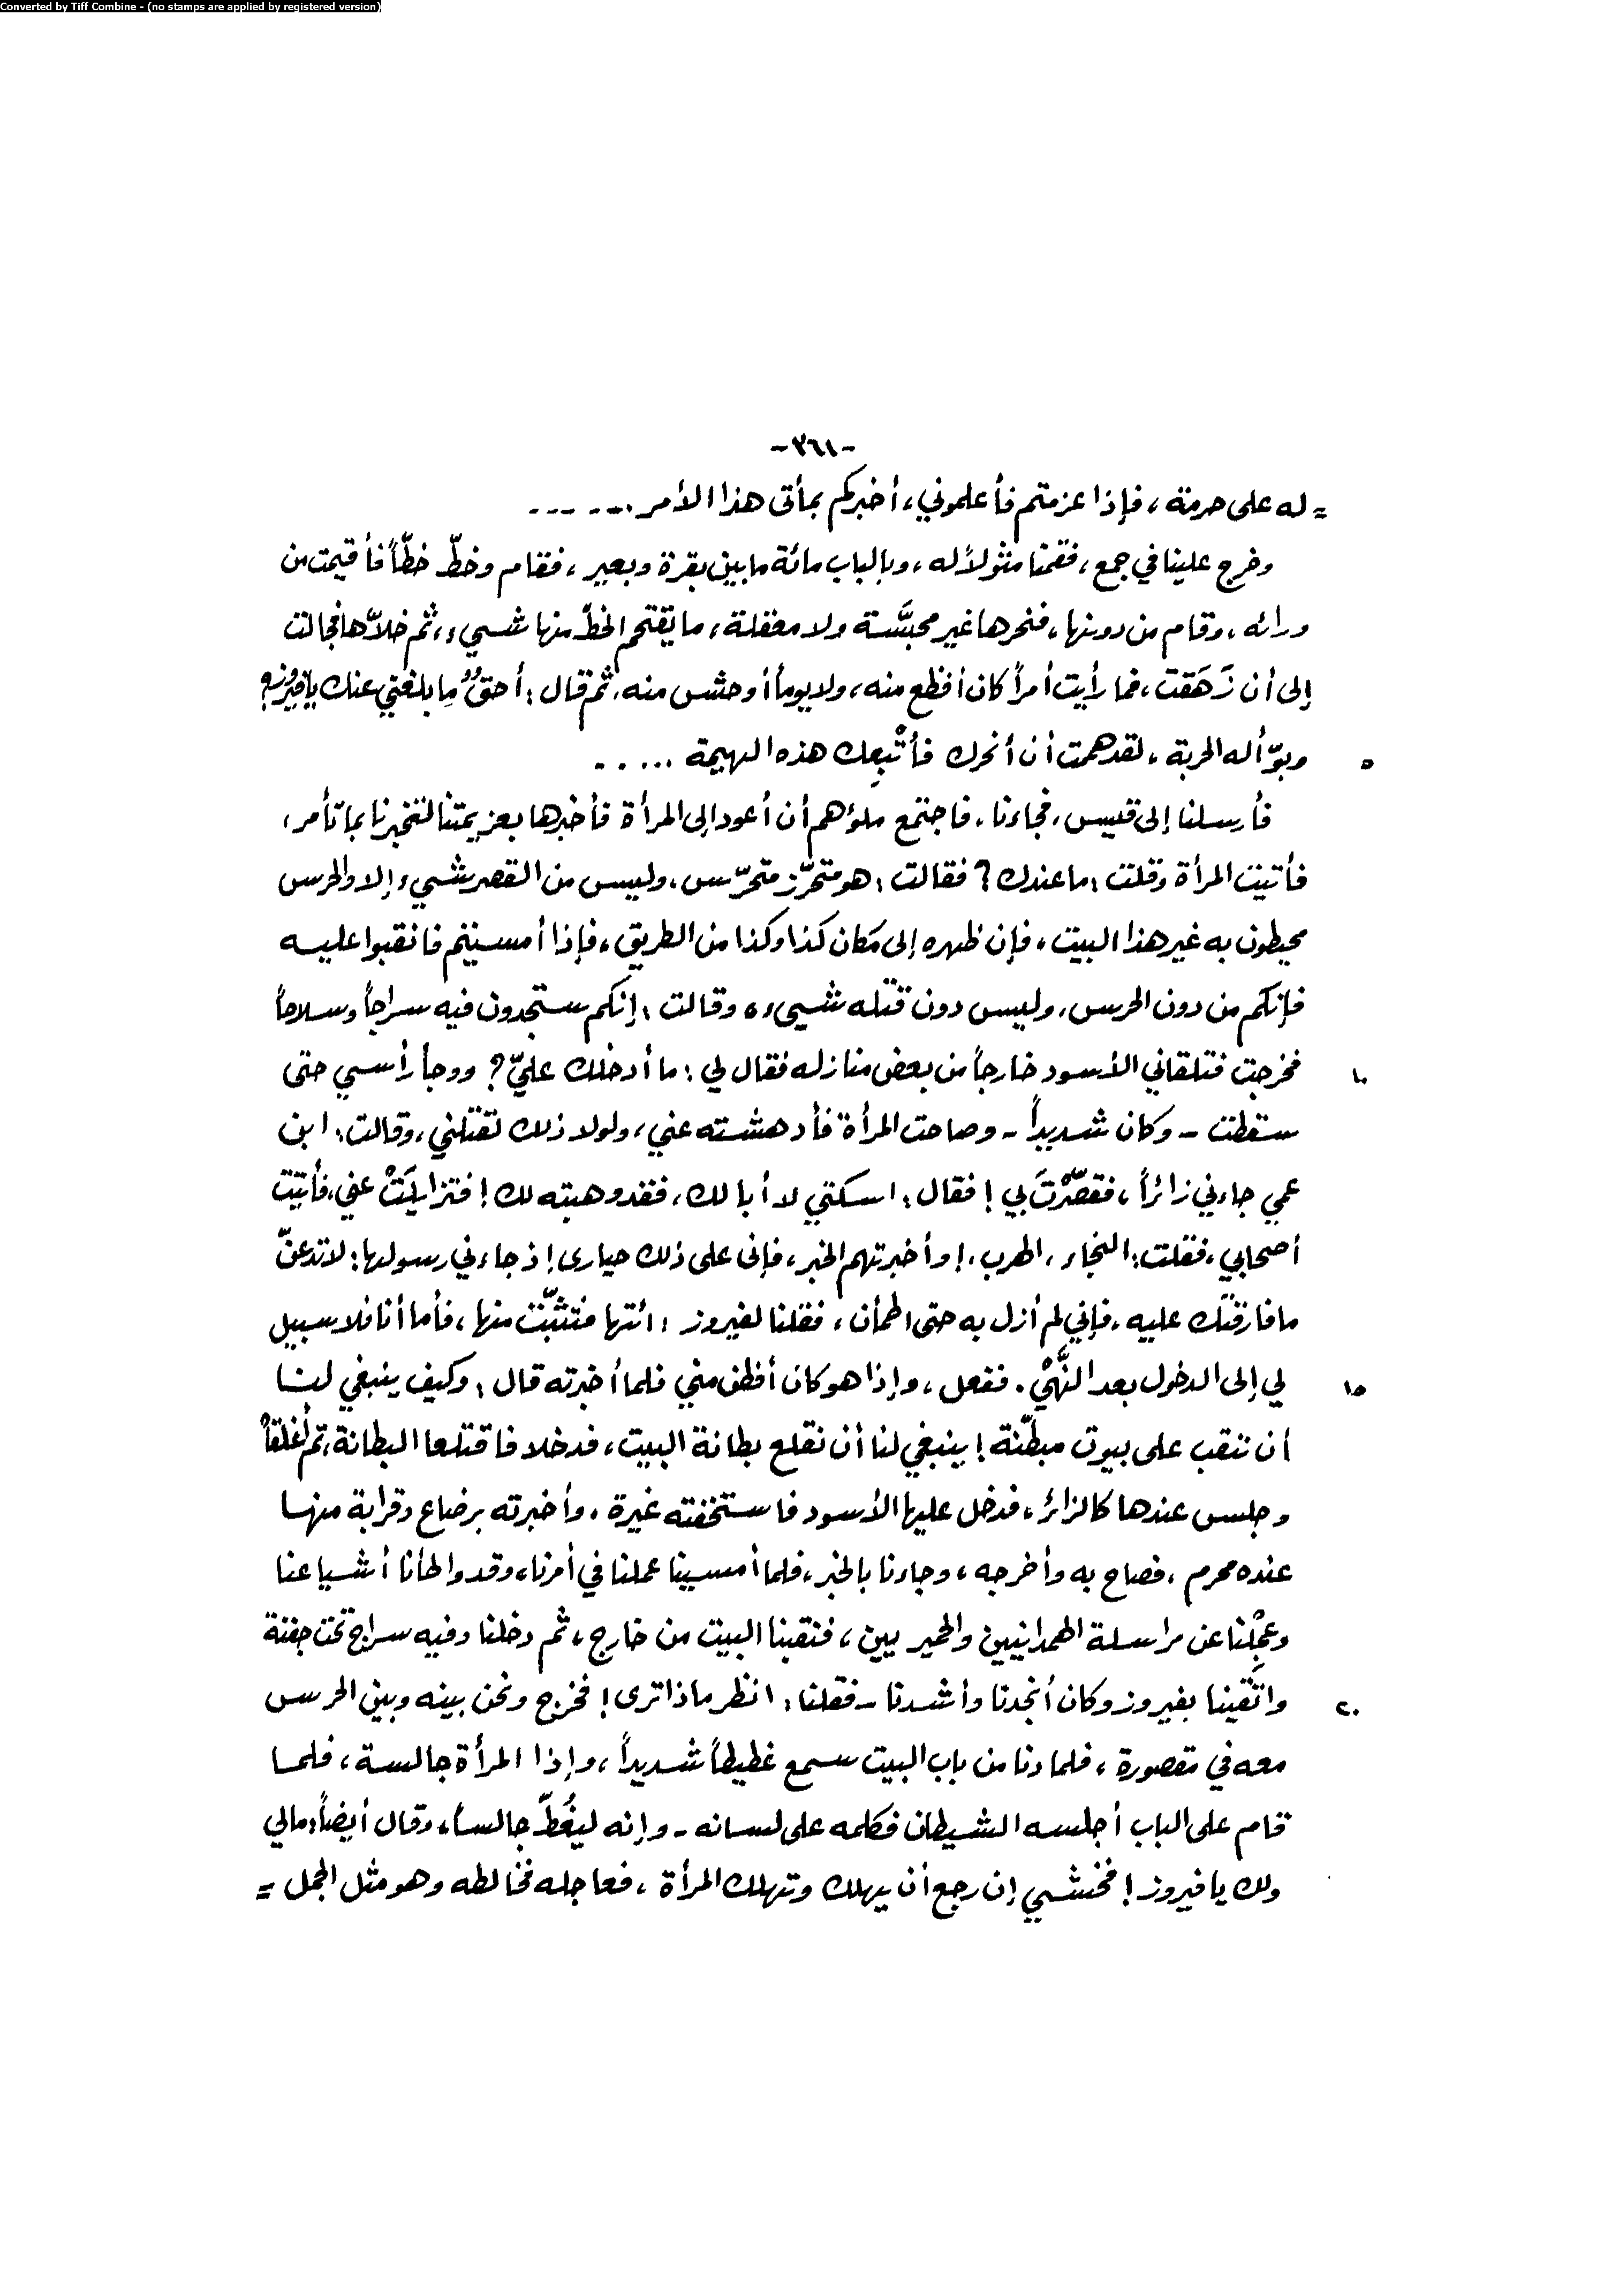 Converted by Tiff Combine - (no stamps are applied by registered version)
-٣٦١-
= له على حرمة ، فإذا عزمتم فأعلموني ، أخبركم بمأتى هذا الأمر ......
وخرج علينا في جمع ، فقمنا مثولاً له ، وبالباب مائة ما بين بقرة وبعير ، فقام وخطّ خطّاً فأقيمت من
ورائه ، وقام من دونها ، فنحرها غير محبَّسة ولا معقلة ، ما يقتحم الخطّ منها شيء ، ثم خلاّها فجالت
إلى أن زَهَقت ، فما رأيت أمراً كان أفظع منه ، ولا يوماً أوحش منه . ثم قال : أحقٌّ ما بلغني عنك يا فيروز ؟
٥ وبوّأ له الحربة ، لقد هممت أن أنحرك فأُتْبِعك هذه البهيمة .....
فأرسلنا إلى قيس ، فجاءنا ، فاجتمع ملؤهم أن أعود إلى المرأة فأخبرها بعزيمتنا لتخبرنا بما تأمر ،
فأتيت المرأة وقلت : ما عندك ؟ فقالت : هو متحرّز متحرّس ، وليس من القصر شيء إلا والحرس
محيطون به غير هذا البيت ، فإن ظهره إلى مكان كذا وكذا من الطريق ، فإذا أمسيتم فانقبوا عليه
فإنكم من دون الحرس ، وليس دون قتله شيء ، وقالت : إنكم ستجدون فيه سراجاً وسلاحاً
١٠ فخرجت فتلقاني الأسود خارجاً من بعض منازله فقال لي : ما أدخلك عليّ ؟ ووجأ رأسي حتى
سقطت - وكان شديداً - وصاحت المرأة فأدهشته عني ، ولولا ذلك لقتلني ، وقالت : ابن
عمي جاءني زائراً ، فقصّرْتَ بي ! فقال : اسكتي لا أبا لك ، فقد وهبته لك ! فتزايلَتْ عني ، فأتيت
أصحابي ، فقلت : النجاء ، الهرب . ! وأخبرتهم الخبر ، فإني على ذلك حيارى إذ جاءني رسولها : لا تدعنّ
ما فارقتك عليه ، فإني لم أزل به حتى اطمأن ، فقلنا لفيروز : ائتها فتثبّت منها ، فأما أنا فلا سبيل
١٥ لي إلى الدخول بعد النَّهْي . ففعل ، وإذا هو كان أفطن مني فلما أخبرته قال : وكيف ينبغي لنا
أن ننقب على بيوت مبطّنة ! ينبغي لنا أن نقلع بطانة البيت ، فدخلا فاقتلعا البطانة ، ثم أغلقاه
وجلس عندها كالزائر ، فدخل عليها الأسود فاستخفته غيرة ، وأخبرته برضاع وقرابة منها
عنده محرم ، فصاح به وأخرجه ، وجاءنا بالخبر ، فلما أمسينا عملنا في أمرنا ، وقد واطأنا أشياعنا
وعَجِلْنا عن مراسلة الهمدانيين والحميريين ، فنقبنا البيت من خارج ، ثم دخلنا وفيه سراج تحت جفنة
٢٠ واتَّقينا بفيروز وكان أنجدنا وأشدنا - فقلنا : انظر ماذا ترى ! فخرج ونحن بينه وبين الحرس
معه في مقصورة ، فلما دنا من باب البيت سمع غطيطاً شديداً ، وإذا المرأة جالسة ، فلما
قام على الباب أجلسه الشيطان فكلمه على لسانه - وإنه ليغُطّ جالساً ، وقال أيضاً : مالي
ولك يا فيروز ! فخشي إن رجع أن يهلك وتهلك المرأة ، فعاجله فخالطه وهو مثل الجمل =